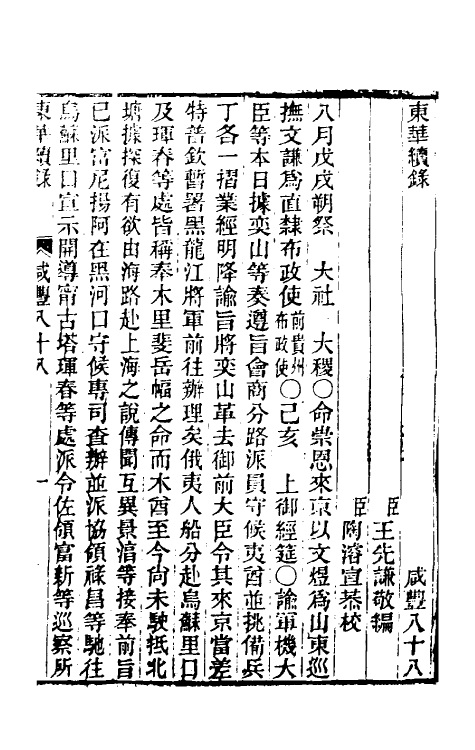 東華續錄　咸豐八十八
臣王先謙敬編
臣陶濬宣恭校
八月戊戌朔祭　大社　大稷○命崇恩來京以文煜爲山東巡
撫文謙爲直隸布政使前貴州布政使○己亥　上御經筵○諭軍機大
臣等本日據奕山等奏遵旨會商分路派員守候夷酋並挑備兵
丁各一摺業經明降諭旨將奕山革去御前大臣令其來京當差
特普欽暫署黑龍江將軍前往辦理矣俄夷人船分赴烏蘇里口
及琿春等處皆稱奉木里斐岳幅之命而木酋至今尚未駛抵北
塘據探復有欲由海路赴上海之說傳聞互異景淳等接奉前旨
已派富尼揚阿在黑河口守候專司查辦並派協領祿昌等馳往
烏蘇里口宣示開導甯古塔琿春等處派令佐領富新等巡察所
東華續錄　咸豐八十八　一